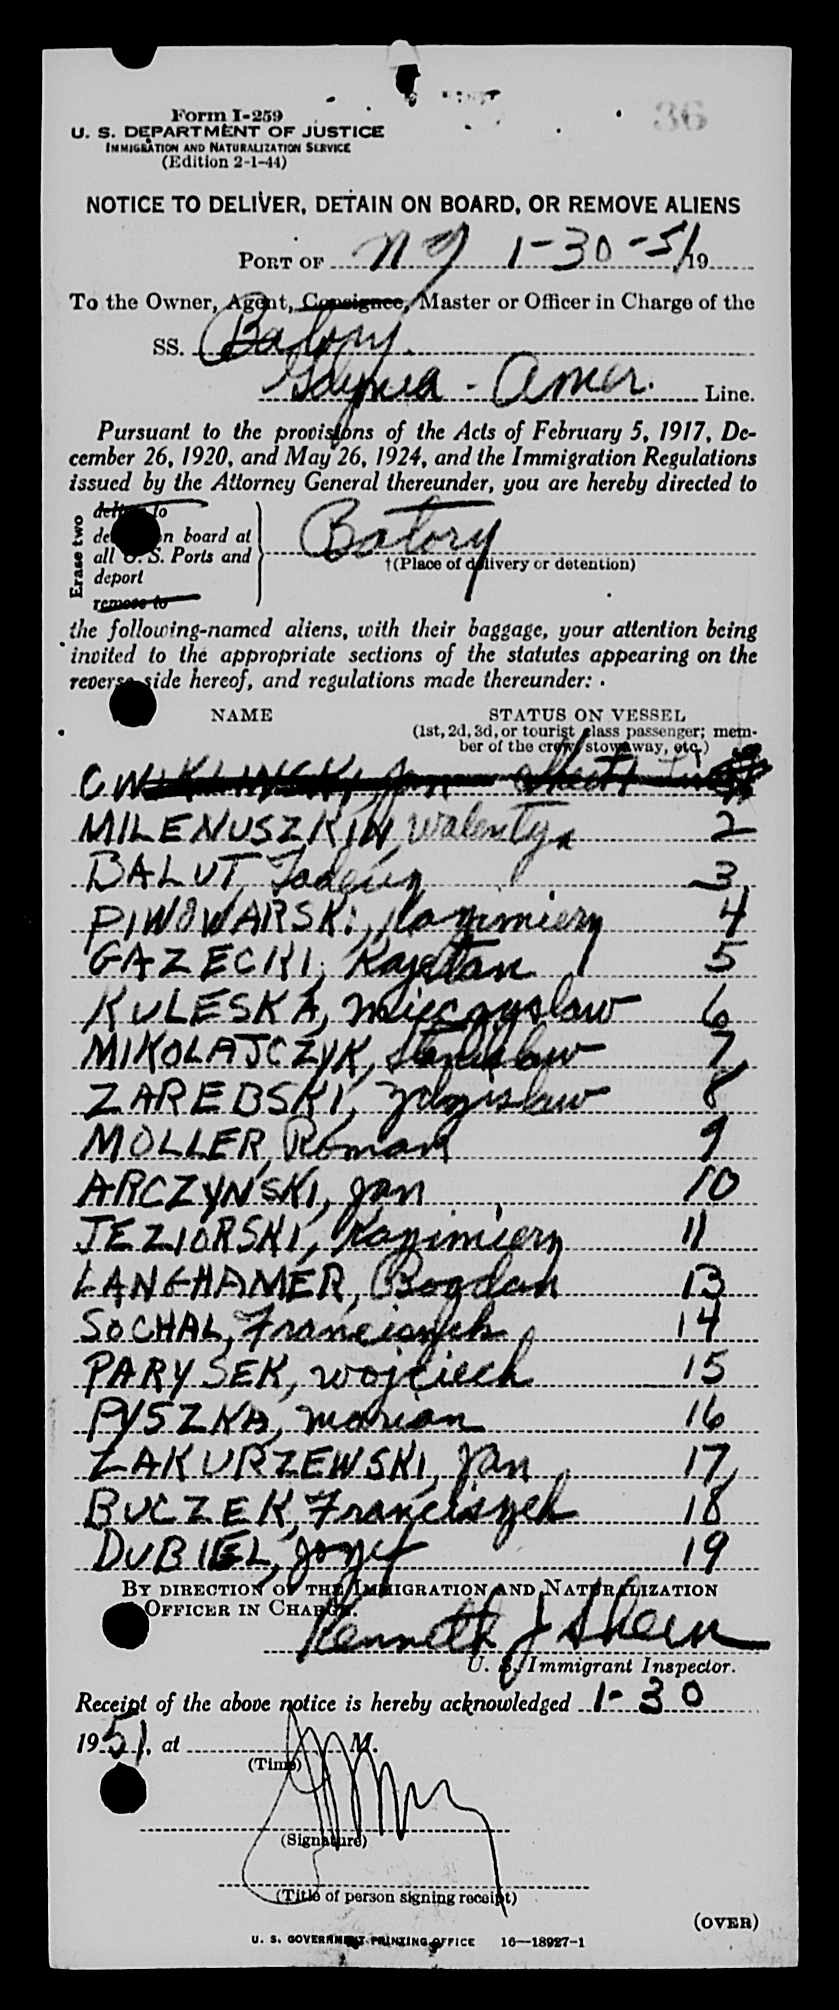 36
Form I-259
U. S. DEPARTMENT OF JUSTICE
IMMIGRATION AND NATURALIZATION SERVICE
(Edition 2-1-44)
NOTICE TO DELIVER, DETAIN ON BOARD, OR REMOVE ALIENS
PORT OF NY 1-30-51 19
To the Owner, Agent, Consignee, Master or Officer in Charge of the
SS. Batory
Gdynia - Amer. Line.
Pursuant to the provisions of the Acts of February 5, 1917, De-
cember 26, 1920, and May 26, 1924, and the Immigration Regulations
issued by the Attorney General thereunder, you are hereby directed to
Erase two
deliver to
on board at
all U. S. Ports and
deport
remove to
Batory
†(Place of delivery or detention)
the following-named aliens, with their baggage, your attention being
invited to the appropriate sections of the statutes appearing on the
reverse side hereof, and regulations made thereunder:
NAME STATUS ON VESSEL
(1st, 2d, 3d, or tourist class passenger; mem-
ber of the crew, stowaway, etc.)
CWIKLINSKI, Jan
MILENUSZKIN, Walenty 2
BALUT, Tadeusz 3
PIWOWARSKI, Kazimierz 4
GAZECKI, Kajetan 5
KULESKA, Mieczyslaw 6
MIKOLAJCZYK, Stanislaw 7
ZAREBSKI, Zdzislaw 8
MOLLER, Roman 9
ARCZYNSKI, Jan 10
JEZIORSKI, Kazimierz 11
LANGHAMER, Bogdan 13
SOCHAL, Franciszek 14
PARYSEK, Wojciech 15
PYSZKA, Marian 16
ZAKURZEWSKI, Jan 17
BUCZEK, Franciszek 18
DUBIEL, Jozef 19
BY DIRECTION OF THE IMMIGRATION AND NATURALIZATION
OFFICER IN CHARGE.
Kenneth J Shein
U. S. Immigrant Inspector.
Receipt of the above notice is hereby acknowledged 1-30
1951, at M.
(Time)
(Signature)
(Title of person signing receipt)
(OVER)
U. S. GOVERNMENT PRINTING OFFICE 16—18927-1